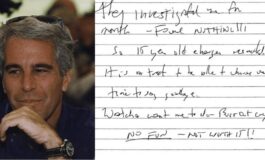 They investigated me for
month — FOUND NOTHING!!!
So 15 year old charges resulted
It is a treat to be able to choose
time to say goodbye.
Watcha want me to do — Bust out cryin
NO FUN — NOT WORTH IT!!